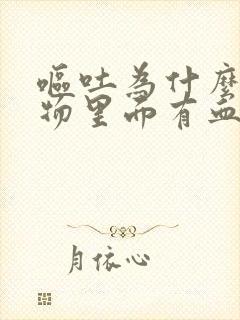 嘔吐為什麼
物里面有血
月依心